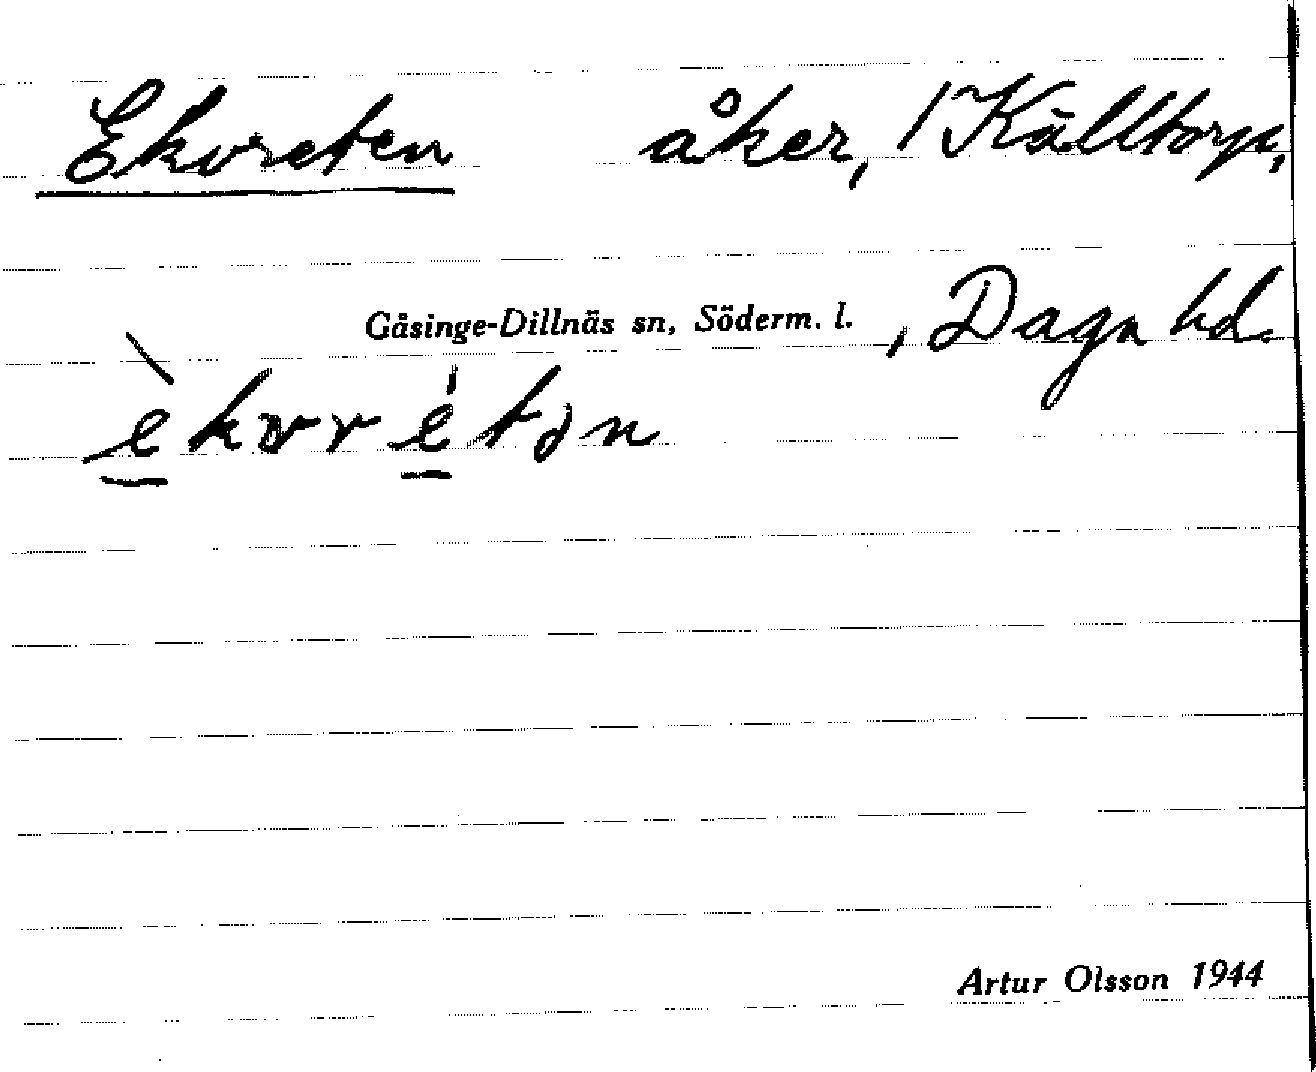 Ekvreten åker, / Källtorp,
Gåsinge-Dillnäs sn, Söderm. l. , Daga hd.
èkvrétən
Artur Olsson 1944